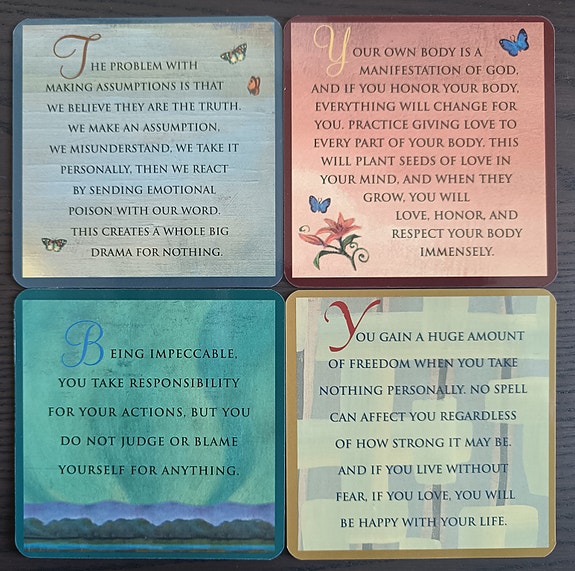 THE PROBLEM WITH
MAKING ASSUMPTIONS IS THAT
WE BELIEVE THEY ARE THE TRUTH.
WE MAKE AN ASSUMPTION,
WE MISUNDERSTAND, WE TAKE IT
PERSONALLY, THEN WE REACT
BY SENDING EMOTIONAL
POISON WITH OUR WORD.
THIS CREATES A WHOLE BIG
DRAMA FOR NOTHING.
YOUR OWN BODY IS A
MANIFESTATION OF GOD,
AND IF YOU HONOR YOUR BODY,
EVERYTHING WILL CHANGE FOR
YOU. PRACTICE GIVING LOVE TO
EVERY PART OF YOUR BODY. THIS
WILL PLANT SEEDS OF LOVE IN
YOUR MIND, AND WHEN THEY
GROW, YOU WILL
LOVE, HONOR, AND
RESPECT YOUR BODY
IMMENSELY.
BEING IMPECCABLE,
YOU TAKE RESPONSIBILITY
FOR YOUR ACTIONS, BUT YOU
DO NOT JUDGE OR BLAME
YOURSELF FOR ANYTHING.
YOU GAIN A HUGE AMOUNT
OF FREEDOM WHEN YOU TAKE
NOTHING PERSONALLY. NO SPELL
CAN AFFECT YOU REGARDLESS
OF HOW STRONG IT MAY BE.
AND IF YOU LIVE WITHOUT
FEAR, IF YOU LOVE, YOU WILL
BE HAPPY WITH YOUR LIFE.